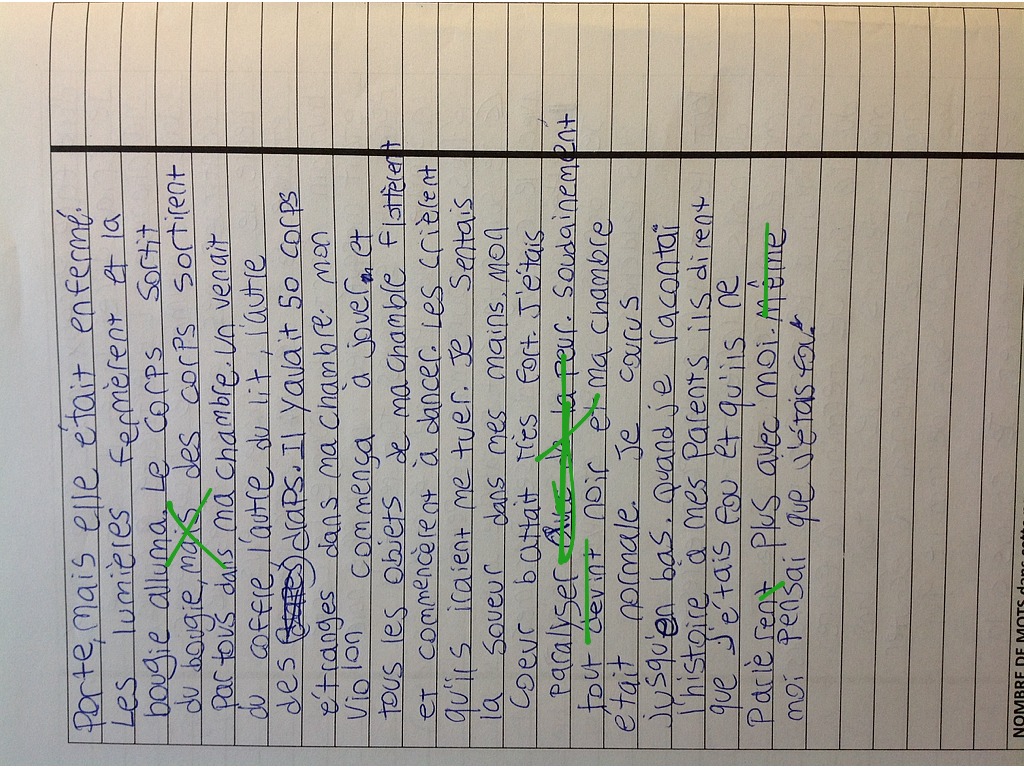 porte, mais elle était enfermé.
Les lumières fermèrent et la
bougie alluma. Le corps sortit
du bougie, mais des corps sortirent
partous dans ma chambre. un venait
du coffre l'autre du lit, l'autre
des draps. Il yavait 50 corps
étranges dans ma chambre. mon
violon commença à jouer et
tous les objets de ma chambre flottèrent
et commencèrent à dancer. Les crièrent
qu'ils iraient me tuer. Je sentais
la soueur dans mes mains. mon
coeur battait très fort. J'étais
paralyser de la peur. soudainement
tout devint noir et ma chambre
était normale. Je courus
jusqu'en bas. quand je racontai
l'histoire à mes parents ils dirent
que j'étais fou et qu'ils ne
parlèrent plus avec moi. même
moi pensai que j'étais fou.
NOMBRE DE MOTS dans cette